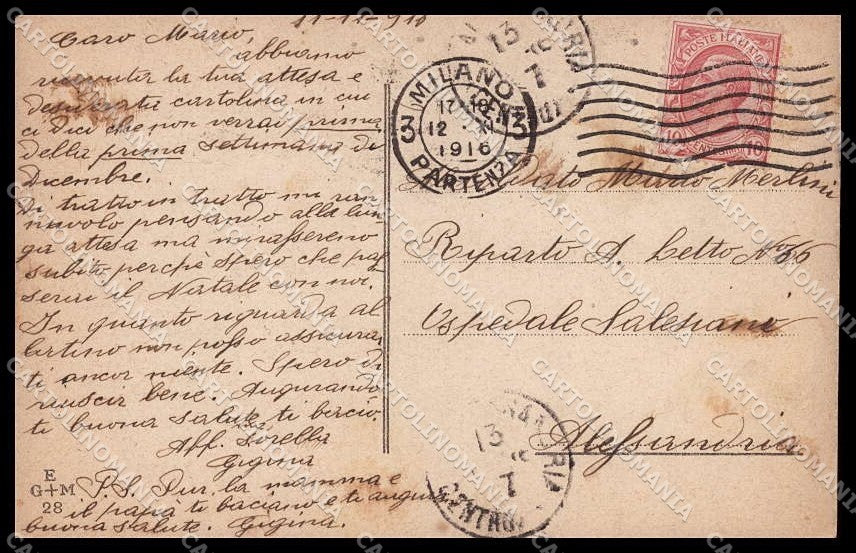 11-11-910
Caro Mario,
abbiamo
ricevuta la tua attesa e
desiderata cartolina in cui
ci dici che non verrai prima
della prima settimana di
Dicembre.
Di tratto in tratto mi ran
nuvolo pensando alla lun
ga attesa ma mi rassereno
subito perchè spero che pas
serai il Natale con noi.
In quanto riguarda al
bertino non posso assicurar
ti ancor niente. Spero di
riuscir bene. Augurando
ti buona salute ti bacio.
Aff. Sorella
Gigina
P.S. Pur la mamma e
il papà ti baciano e ti augura
buona salute. Gigina.
E
G+M
28
MILANO
17-18
12 XI
1916
3 3
PARTENZA
13
1
POSTE ITALIANE
10 CENTESIMI 10
Mario Merlini
Riparto A. Letto No 66
Ospedale Salesiani
Alessandria
ALESSANDRIA
13
1
CENTRO
CARTOLINOMANIA